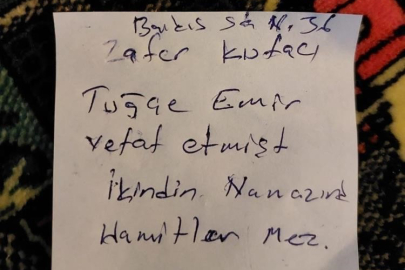 Barış Sk N. 36
Zafer
Tuğçe Emir
vefat etmişt
İkindin Namazınd
Hamitler Mez.